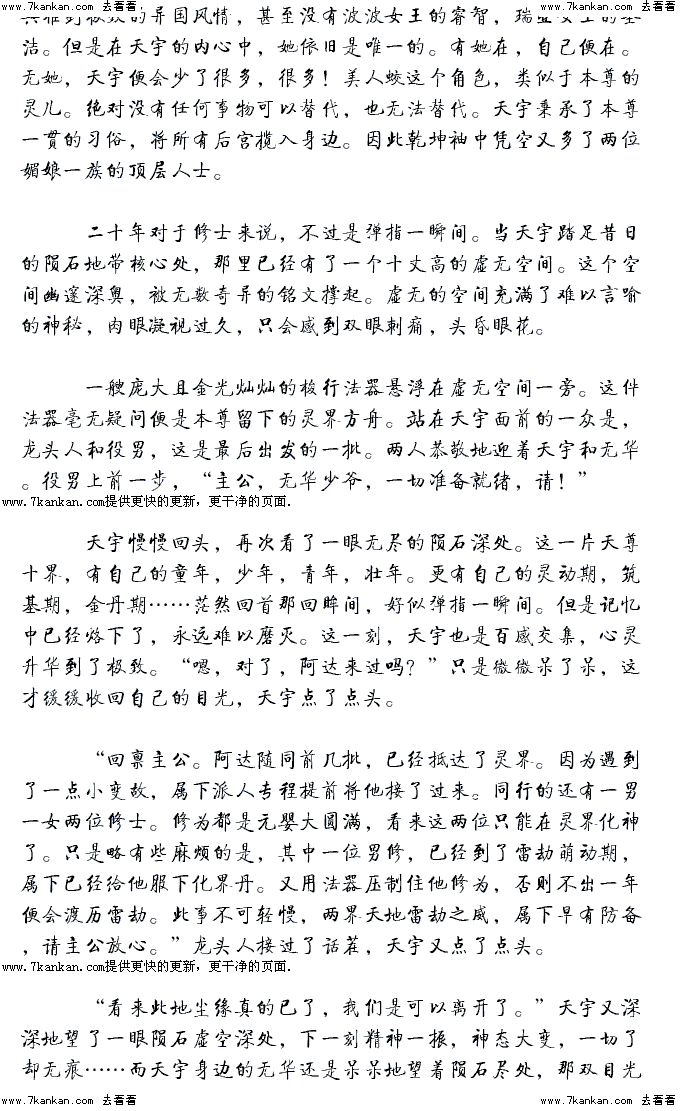 www.7kankan.com 去看看 www.7kankan.com 去看看
的异国风情，甚至没有波波女王的睿智，瑞
洁。但是在天宇的内心中，她依旧是唯一的。有她在，自己便在。
无她，天宇便会少了很多，很多！美人蛟这个角色，类似于本尊的
灵儿。绝对没有任何事物可以替代，也无法替代。天宇秉承了本尊
一贯的习俗，将所有后宫揽入身边。因此乾坤袖中凭空又多了两位
媚娘一族的顶层人士。
二十年对于修士来说，不过是弹指一瞬间。当天宇踏足昔日
的陨石地带核心处，那里已经有了一个十丈高的虚无空间。这个空
间幽邃深奥，被无数奇异的铭文撑起。虚无的空间充满了难以言喻
的神秘，肉眼凝视过久，只会感到双眼刺痛，头昏眼花。
一艘庞大且金光灿灿的梭行法器悬浮在虚无空间一旁。这件
法器毫无疑问便是本尊留下的灵界方舟。站在天宇面前的一众是，
龙头人和役男，这是最后出发的一批。两人恭敬地迎着天宇和无华
。役男上前一步，“主公，无华少爷，一切准备就绪，请！”
www.7kankan.com提供更快的更新，更干净的页面.
天宇慢慢回头，再次看了一眼无尽的陨石深处。这一片天尊
十界，有自己的童年，少年，青年，壮年。更有自己的灵动期，筑
基期，金丹期……茫然回首那回眸间，好似弹指一瞬间。但是记忆
中已经烙下了，永远难以磨灭。这一刻，天宇也是百感交集，心灵
升华到了极致。“嗯，对了，阿达来过吗？”只是微微呆了呆，这
才缓缓收回自己的目光，天宇点了点头。
“回禀主公。阿达随同前几批，已经抵达了灵界。因为遇到
了一点小变故，属下派人专程提前将他接了过来。同行的还有一男
一女两位修士。修为都是元婴大圆满，看来这两位只能在灵界化神
了。只是略有些麻烦的是，其中一位男修，已经到了雷劫萌动期，
属下已经给他服下化界丹。又用法器压制住他修为，否则不出一年
便会渡历雷劫。此事不可轻慢，两界天地雷劫之威，属下早有防备
，请主公放心。”龙头人接过了话茬，天宇又点了点头。
www.7kankan.com提供更快的更新，更干净的页面.
“看来此地尘缘真的已了，我们是可以离开了。”天宇又深
深地望了一眼陨石虚空深处，下一刻精神一振，神态大变，一切了
却无痕……而天宇身边的无华还是呆呆地望着陨石尽处，那双目光
www.7kankan.com 去看看 www.7kankan.com 去看看